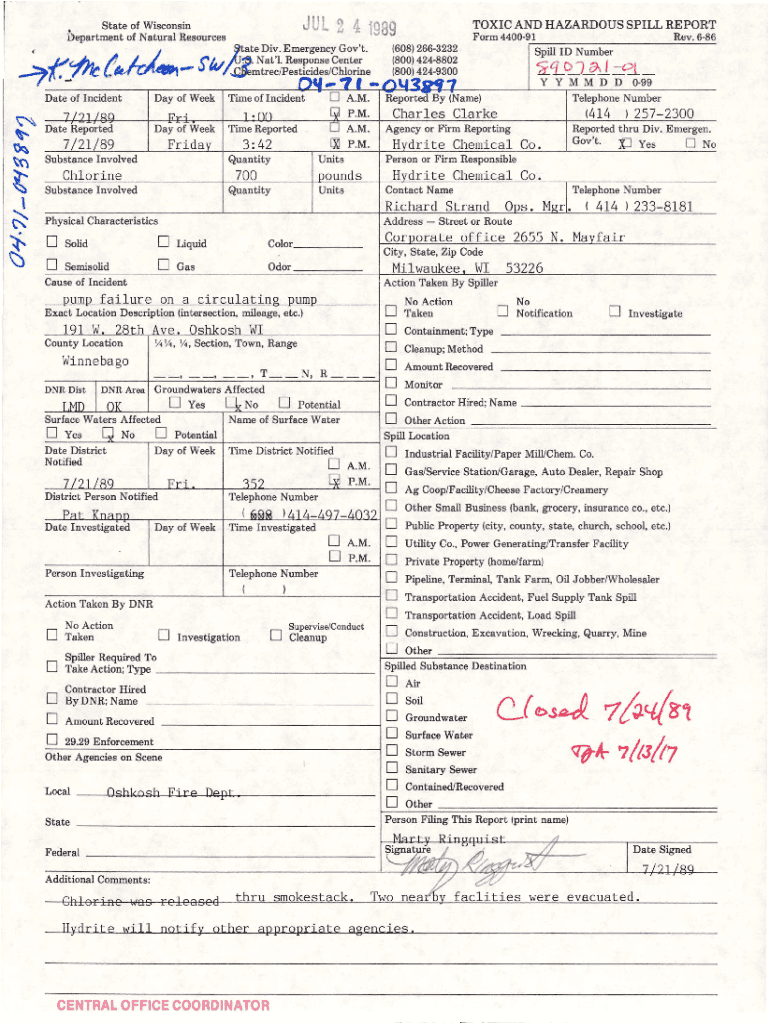 State of Wisconsin
Department of Natural Resources
JUL 24 1989
TOXIC AND HAZARDOUS SPILL REPORT
Form 4400-91 Rev. 6-86
State Div. Emergency Gov't. (608) 266-3232
U.S. Nat'l. Response Center (800) 424-8802
Chemtrec/Pesticides/Chlorine (800) 424-9300
K. McCutcheon - SW/3
04-71-043897
Spill ID Number
890721-01
Y Y M M D D 0-99
04-71-043897
Date of Incident Day of Week Time of Incident A.M. Reported By (Name) Telephone Number
7/21/89 Fri. 1:00 X P.M. Charles Clarke (414 ) 257-2300
Date Reported Day of Week Time Reported A.M. Agency or Firm Reporting Reported thru Div. Emergen.
7/21/89 Friday 3:42 X P.M. Hydrite Chemical Co. Gov't. X Yes No
Substance Involved Quantity Units Person or Firm Responsible
Chlorine 700 pounds Hydrite Chemical Co.
Substance Involved Quantity Units Contact Name Telephone Number
Richard Strand Ops. Mgr. ( 414 ) 233-8181
Physical Characteristics
Solid Liquid Color
Semisolid Gas Odor
Address — Street or Route
Corporate office 2655 N. Mayfair
City, State, Zip Code
Milwaukee, WI 53226
Cause of Incident
pump failure on a circulating pump
Exact Location Description (intersection, mileage, etc.)
191 W. 28th Ave. Oshkosh WI
County Location ¼¼, ¼, Section, Town, Range
Winnebago
, , , T N, R
DNR Dist DNR Area Groundwaters Affected
LMD OK Yes X No Potential
Surface Waters Affected Name of Surface Water
Yes X No Potential
Date District Notified Day of Week Time District Notified A.M.
7/21/89 Fri. 352 X P.M.
District Person Notified Telephone Number
Pat Knapp ( 608 )414-497-4032
Date Investigated Day of Week Time Investigated
A.M.
P.M.
Person Investigating Telephone Number
( )
Action Taken By DNR
No Action Taken Investigation Supervise/Conduct Cleanup
Spiller Required To
Take Action; Type
Contractor Hired
By DNR; Name
Amount Recovered
29.29 Enforcement
Other Agencies on Scene
Local Oshkosh Fire Dept.
State
Federal
Action Taken By Spiller
No Action Taken No Notification Investigate
Containment; Type
Cleanup; Method
Amount Recovered
Monitor
Contractor Hired; Name
Other Action
Spill Location
Industrial Facility/Paper Mill/Chem. Co.
Gas/Service Station/Garage, Auto Dealer, Repair Shop
Ag Coop/Facility/Cheese Factory/Creamery
Other Small Business (bank, grocery, insurance co., etc.)
Public Property (city, county, state, church, school, etc.)
Utility Co., Power Generating/Transfer Facility
Private Property (home/farm)
Pipeline, Terminal, Tank Farm, Oil Jobber/Wholesaler
Transportation Accident, Fuel Supply Tank Spill
Transportation Accident, Load Spill
Construction, Excavation, Wrecking, Quarry, Mine
Other
Spilled Substance Destination
Air
Soil
Groundwater
Surface Water
Storm Sewer
Sanitary Sewer
Contained/Recovered
Other
Closed 7/24/89
7/13/17
Person Filing This Report (print name)
Marty Ringquist
Signature Marty Ringquist Date Signed
7/21/89
Additional Comments:
Chlorine was released thru smokestack. Two nearby faclities were evacuated.
Hydrite will notify other appropriate agencies.
CENTRAL OFFICE COORDINATOR